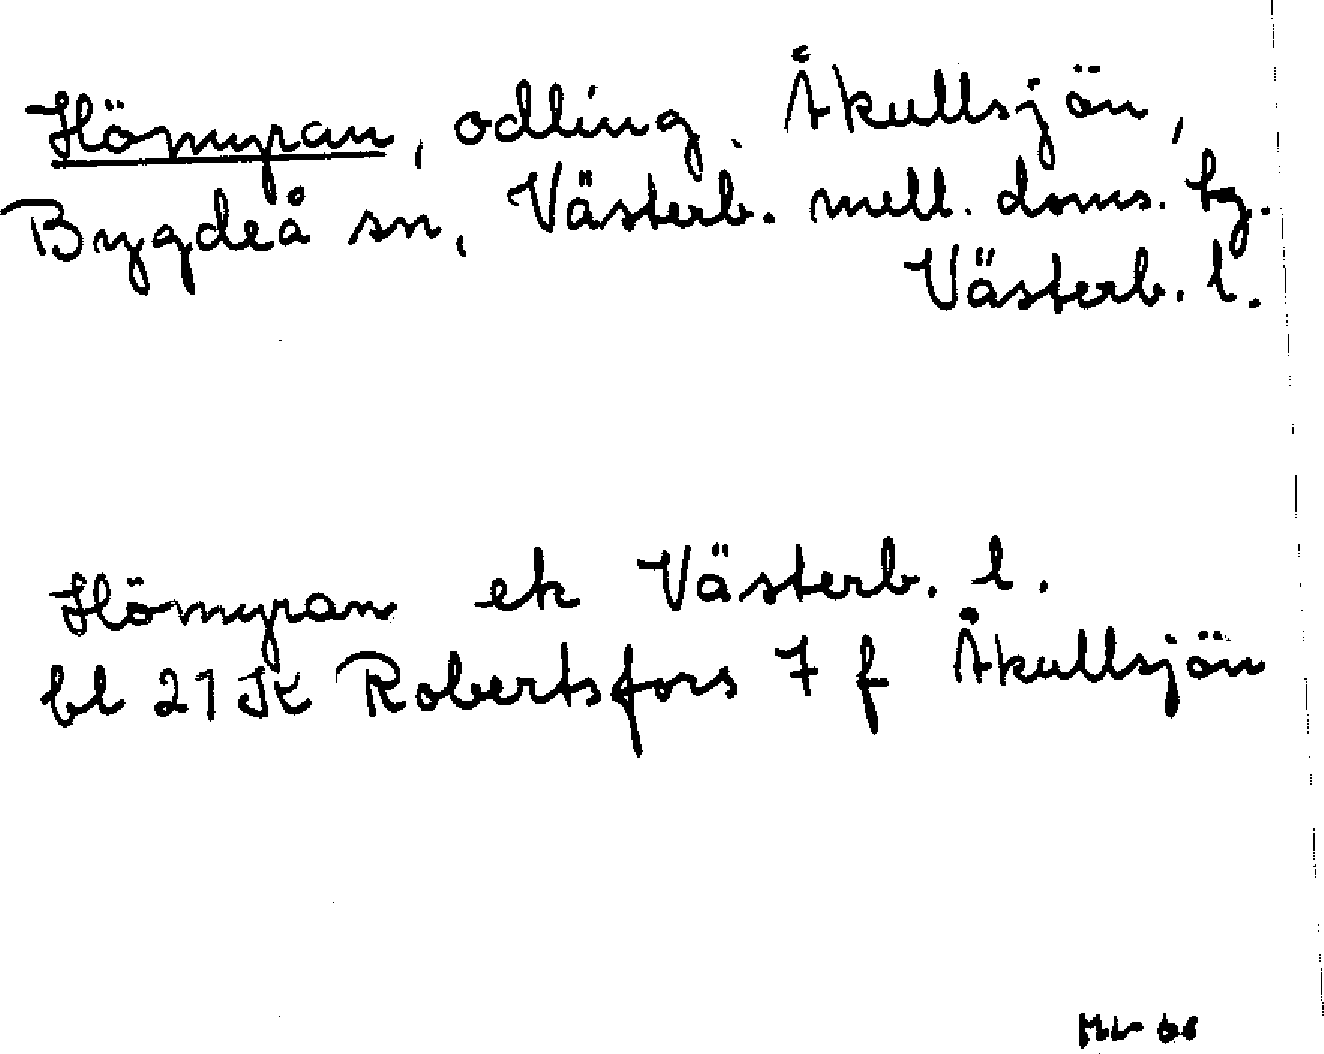 Hömyran, odling. Åkullsjön,
Bygdeå sn, Västerb. mell. doms. tg.
Västerb. l.
Hömyran ek Västerb. l.
bl 21K Robertsfors 7 f Åkullsjön